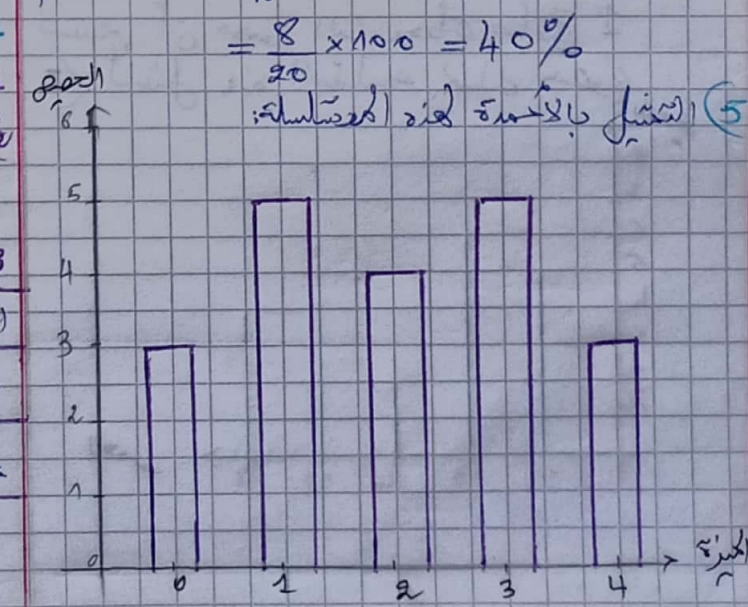 = 8/20 × 100 = 40%
5) التمثيل بالأعمدة لهذه المتسلسلة:
الحصيص
6
5
4
3
2
1
0
0 1 2 3 4
الميزة